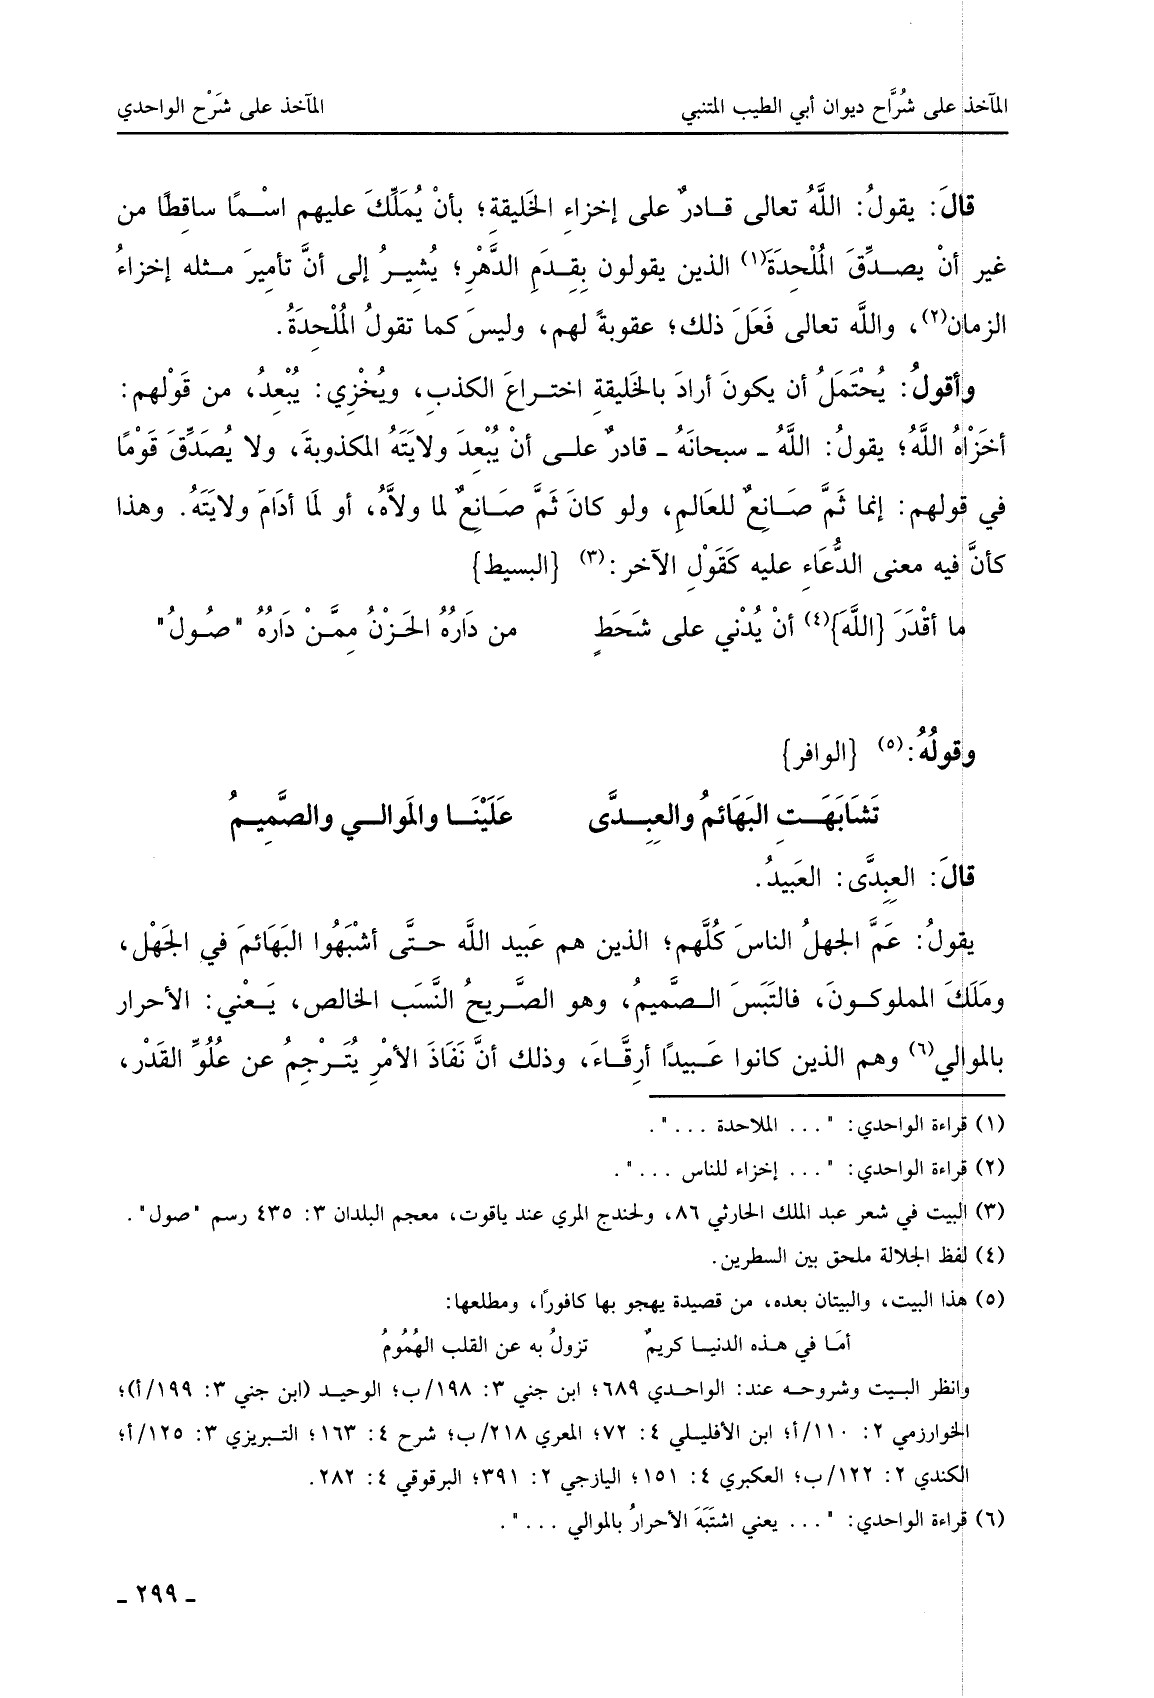 المآخذ على شُرَّاح ديوان أبي الطيب المتنبي المآخذ على شَرْح الواحدي
قالَ: يقولُ: اللَّهُ تعالى قادرٌ على إخزاءِ الخَليقةِ؛ بأنْ يُمَلِّكَ عليهم اسْمًا ساقِطًا من
غير أنْ يصدِّقَ المُلْحِدَةَ(١) الذين يقولون بِقِدَمِ الدَّهْرِ؛ يُشِيرُ إلى أنَّ تأمِيرَ مثله إخزاءُ
الزمان(٢)، واللَّه تعالى فَعَلَ ذلك؛ عقوبةً لهم، وليسَ كما تقولُ المُلْحِدَةُ.
وأقولُ: يُحْتَمَلُ أن يكونَ أرادَ بالخَليقةِ اختراعَ الكذب، ويُخْزِي: يُبْعِدُ، من قَوْلهم:
أخَزْاهُ اللَّهُ؛ يقولُ: اللَّهُ ـ سبحانَهُ ـ قادرٌ على أنْ يُبْعِدَ ولايَتَهُ المكذوبةَ، ولا يُصَدِّقَ قَوْمًا
في قولهم: إنما ثَمَّ صَانِعٌ للعَالمِ، ولو كانَ ثَمَّ صَانِعٌ لما ولاَّهُ، أو لَمَا أدَامَ ولايَتَهُ. وهذا
كأنَّ فيه معنى الدُّعَاءِ عليه كَقَوْلِ الآخر:(٣) {البسيط}
ما أقْدَرَ {اللَّهَ}(٤) أنْ يُدْني على شَحَطٍ من دَارُهُ الحَزْنُ مِمَّنْ دَارُهُ "صُولُ"
وقولُهُ:(٥) {الوافر}
تَشَابَهَتِ البَهَائمُ والعِبِدَّى عَلَيْنَا والمَوالي والصَّمِيمُ
قالَ: العِبِدَّى: العَبيدُ.
يقولُ: عَمَّ الجهلُ الناسَ كُلَّهم؛ الذين هم عَبيد اللَّه حتَّى أشْبَهُوا البَهَائمَ في الجَهْل،
ومَلَكَ المملوكونَ، فالتَبَسَ الصَّميمُ، وهو الصَّريحُ النَّسَب الخالص، يَعْني: الأحرار
بالموالي(٦) وهم الذين كانوا عَبيدًا أرِقَّاءَ، وذلك أنَّ نَفَاذَ الأمْرِ يُتَرْجِمُ عن عُلُوِّ القَدْر،
(١) قراءة الواحدي: "... الملاحدة ...".
(٢) قراءة الواحدي: "... إخزاء للناس ...".
(٣) البيت في شعر عبد الملك الحارثي ٨٦، ولحندج المري عند ياقوت، معجم البلدان ٣: ٤٣٥ رسم "صول".
(٤) لفظ الجلالة ملحق بين السطرين.
(٥) هذا البيت، والبيتان بعده، من قصيدة يهجو بها كافورًا، ومطلعها:
أمَا في هذه الدنيا كريمٌ تزولُ به عن القلب الهُمُومُ
وانظر البيت وشروحه عند: الواحدي ٦٨٩؛ ابن جني ٣: ١٩٨/ب؛ الوحيد (ابن جني ٣: ١٩٩/أ)؛
الخوارزمي ٢: ١١٠/أ؛ ابن الأفليلي ٤: ٧٢؛ المعري ٢١٨/ب؛ شرح ٤: ١٦٣؛ التبريزي ٣: ١٢٥/أ؛
الكندي ٢: ١٢٢/ب؛ العكبري ٤: ١٥١؛ اليازجي ٢: ٣٩١؛ البرقوقي ٤: ٢٨٢.
(٦) قراءة الواحدي: "... يعني اشتَبَهَ الأحرارُ بالموالي ...".
ـ ٢٩٩ ـ